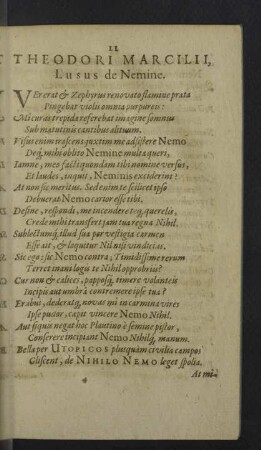 II
THEODORI MARCILII,
Lusus de Nemine.
VEr erat & Zephyrus renovato flamine prata
Pingebat violis omnia purpureis:
Mi curas trepida referebat imagine somnus
Sub matutinis cantibus alituum.
Visus enim irascens juxtim me adsistere Nemo
Deq́; mihi oblito Nemine multa queri,
Iamne, meos facti quondam tibi nomine versus,
Et laudes, inquit, Neminis exciderint?
At non sic meritus. Sed enim te scilicet ipso
Debuerat Nemo carior esse tibi.
Desine, respondi, me incendere teq́; querelis,
Crede mihi transfert jam tua regna Nihil.
Sublestumq́; illud sua par vestigia carmen
Esse ait, & loquitur Nil nisi vindicias.
Sic ego: sic Nemo contra; Timidissime rerum
Terret inani logu te Nihil opprobriis?
Cur non & calices, pappósq́; timere volanteis
Incipis aut umbrâ contremere ipse tua?
Erabui, dederatq́; novas mi in carmina vires
Ipse pudor, capit vincere Nemo Nihil.
Aut siquis negat hoc Plantino è semine pistor,
Conserere incipiant Nemo Nihilq́; manum.
Bella per UTOPICOS plusquàm civilia campos
Cliscent, de NIHILO NEMO leget spolia.
At mi-